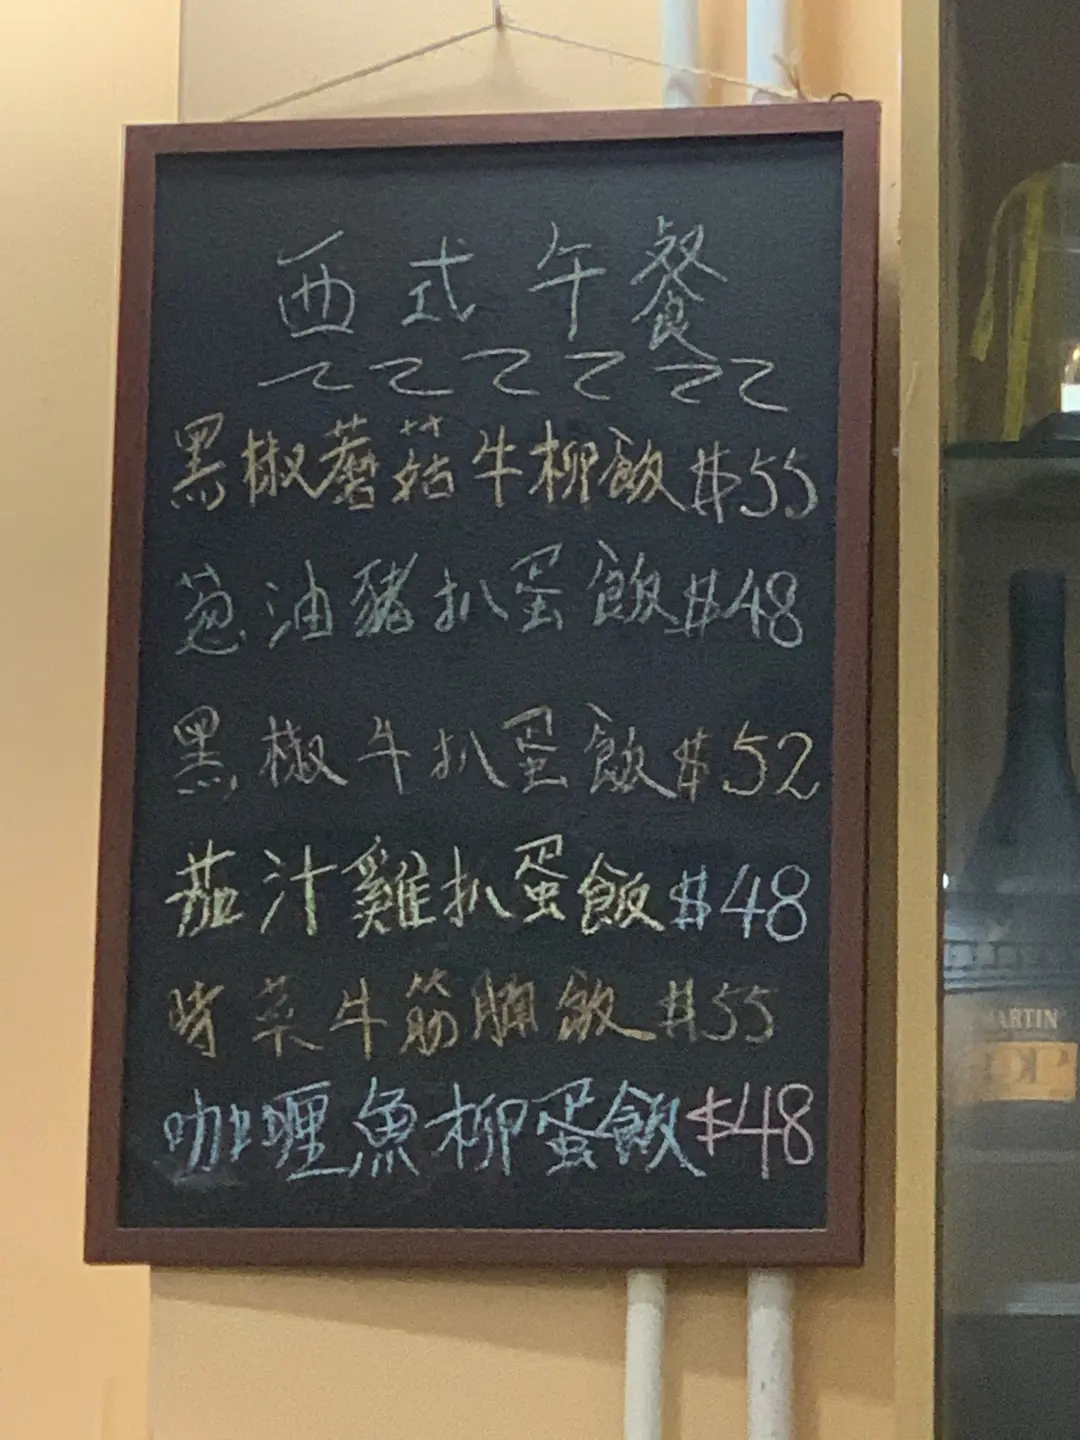 西式午餐
黑椒蘑菇牛柳飯$55
葱油豬扒蛋飯$48
黑椒牛扒蛋飯$52
茄汁雞扒蛋飯$48
時菜牛筋腩飯$55
咖喱魚柳蛋飯$48
MARTIN